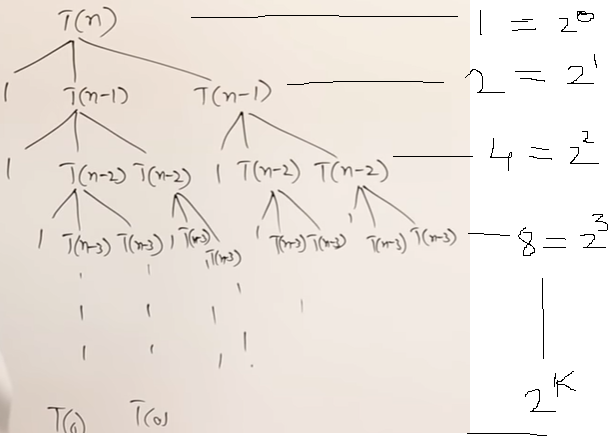 T(n) 1 = 2⁰
1 T(n-1) T(n-1) 2 = 2¹
1 T(n-2) T(n-2) 1 T(n-2) T(n-2) 4 = 2²
1 T(n-3) T(n-3) 1 T(n-3) 1 T(n-3) 1 T(n-3) T(n-3) 1 T(n-3) T(n-3) 8 = 2³
2ᴷ
T(0) T(0)